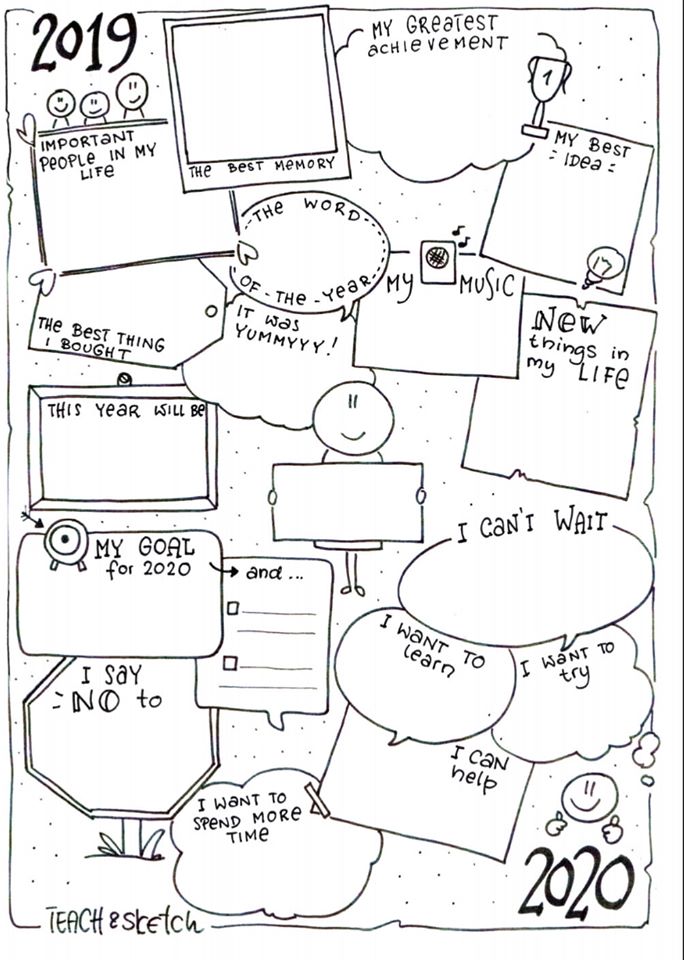 2019
MY GREATEST
ACHIEVEMENT
1
IMPORTANT
PEOPLE IN MY
LIFE
THE BEST MEMORY
MY BEST
IDEA
THE WORD
OF-THE-YEAR
MY MUSIC
THE BEST THING
I BOUGHT
IT WAS
YUMMYYY!
NEW
things in
my LIFE
THIS YEAR WILL BE
I CAN'T WAIT
MY GOAL
for 2020
and ...
I WANT TO
learn
I WANT TO
try
I SAY
NO to
I CAN
help
I WANT TO
SPEND MORE
TIME
2020
TEACH & SKETCH